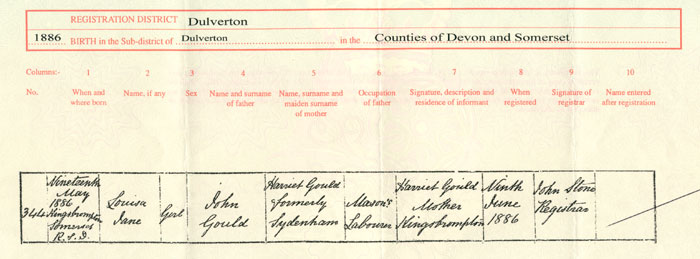 REGISTRATION DISTRICT Dulverton
1886 BIRTH in the Sub-district of Dulverton in the Counties of Devon and Somerset
Columns:- 1 2 3 4 5 6 7 8 9 10
No. When and where born Name, if any Sex Name and surname of father Name, surname and maiden surname of mother Occupation of father Signature, description and residence of informant When registered Signature of registrar Name entered after registration
344 Nineteenth May 1886 Kingsbrompton Somerset R.S.D. Louisa Jane Girl John Gould Harriet Gould formerly Sydenham Mason's Labourer Harriet Gould Mother Kingsbrompton Ninth June 1886 John Stone Registrar